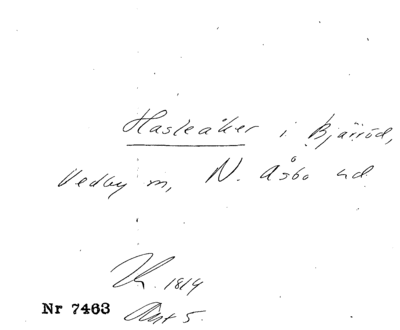 Hasleåker i Bjärröd,
Vedby sn, N. Åsbo hd
K. 1814
Nr 7463 Akt 5.